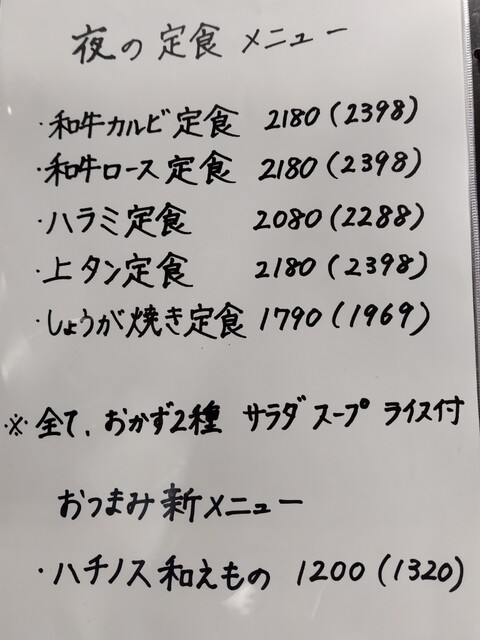 夜の定食メニュー
・和牛カルビ定食 2180(2398)
・和牛ロース定食 2180(2398)
・ハラミ定食 2080(2288)
・上タン定食 2180(2398)
・しょうが焼き定食 1790(1969)
※全て、おかず2種 サラダ スープ ライス付
おつまみ新メニュー
・ハチノス和えもの 1200(1320)